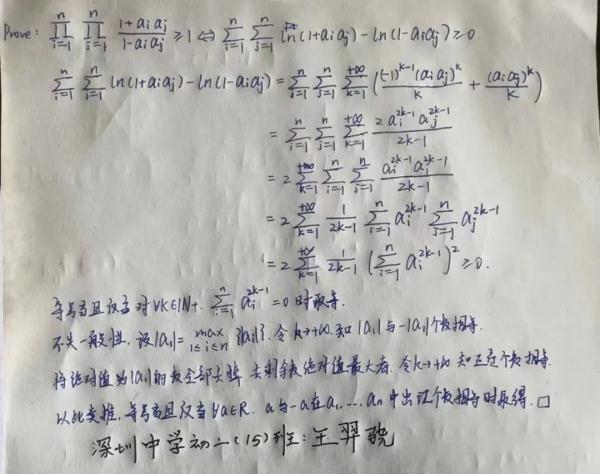 Prove: $\prod_{i=1}^{n} \prod_{j=1}^{n} \frac{1+a_i a_j}{1-a_i a_j} \geq 1 \Leftrightarrow \sum_{i=1}^{n} \sum_{j=1}^{n} \ln(1+a_i a_j) - \ln(1-a_i a_j) \geq 0.$
$\sum_{i=1}^{n} \sum_{j=1}^{n} \ln(1+a_i a_j) - \ln(1-a_i a_j) = \sum_{i=1}^{n} \sum_{j=1}^{n} \sum_{k=1}^{+\infty} \left( \frac{(-1)^{k-1}(a_i a_j)^k}{k} + \frac{(a_i a_j)^k}{k} \right)$
$= \sum_{i=1}^{n} \sum_{j=1}^{n} \sum_{k=1}^{+\infty} \frac{2 a_i^{2k-1} a_j^{2k-1}}{2k-1}$
$= 2 \sum_{k=1}^{+\infty} \sum_{i=1}^{n} \sum_{j=1}^{n} \frac{a_i^{2k-1} a_j^{2k-1}}{2k-1}$
$= 2 \sum_{k=1}^{+\infty} \frac{1}{2k-1} \sum_{i=1}^{n} a_i^{2k-1} \sum_{j=1}^{n} a_j^{2k-1}$
$= 2 \sum_{k=1}^{+\infty} \frac{1}{2k-1} \left( \sum_{i=1}^{n} a_i^{2k-1} \right)^2 \geq 0.$
等号当且仅当对 $\forall k \in \mathbb{N}_+$, $\sum_{i=1}^{n} a_i^{2k-1} = 0$ 时取等.
不失一般性, 设 $|a_1| = \max_{1 \leq i \leq n} \{|a_i|\}$. 令 $k \to +\infty$. 知 $|a_1|$ 与 $-|a_1|$ 个数相等.
将绝对值为 $|a_1|$ 的数全部去掉. 去剩余数绝对值最大者. 令 $k \to +\infty$ 知正负个数相等.
以此类推, 等号当且仅当 $\forall a \in \mathbb{R}$. $a$ 与 $-a$ 在 $a_1, \ldots, a_n$ 中出现个数相等时取得. □
深圳中学初二(15)班: 王羿骁